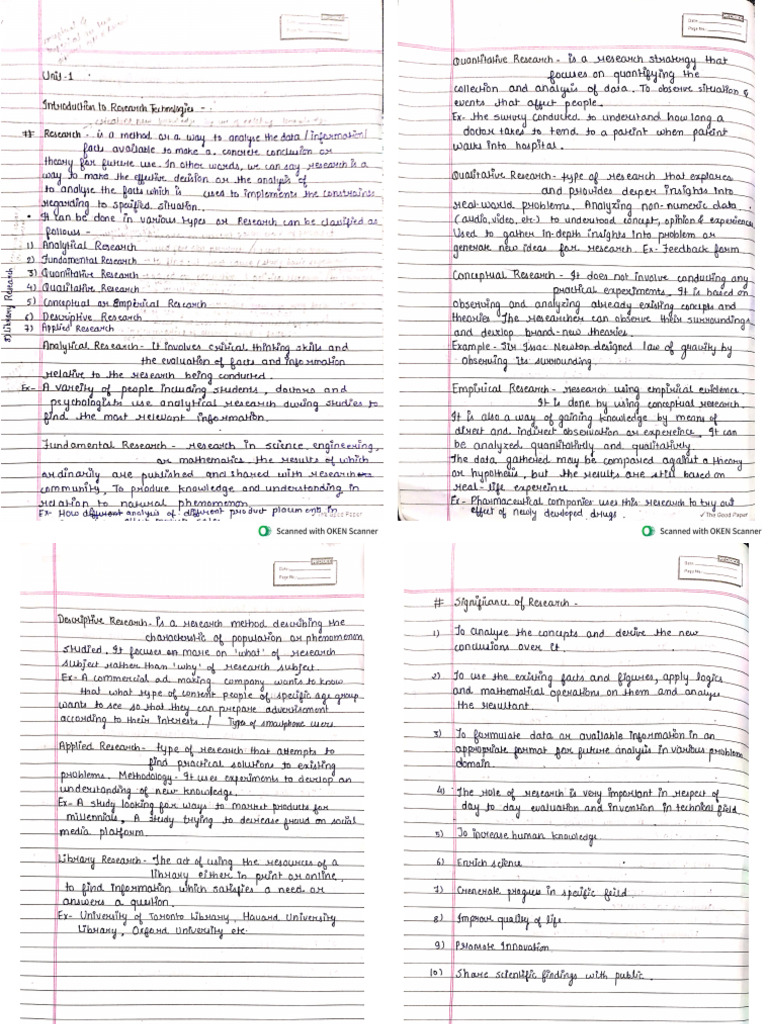 Date
Page No.
Unit-1
Introduction to Research Technologies -
# Research - is a method or a way to analyse the data / information/
facts available to make a concrete conclusion or
theory for future use. In other words, we can say research is a
way to make the effective decision or the analysis of
to analyse the facts which is used to implements the constraints
regarding to specified situation.
• It can be done in various types or Research can be classified as
follows -
1) Analytical Research
2) Fundamental Research
3) Quantitative Research
4) Qualitative Research
5) Conceptual or Empirical Research
6) Descriptive Research
7) Applied Research
8) Library Research
Analytical Research - It involves critical thinking skills and
the evaluation of facts and information
relative to the research being conducted.
Ex- A vareity of people including students, doctors and
psychologists use analytical research during studies to
find the most relevant information.
Fundamental Research - research in science, engineering,
or mathematics. the results of which
ordinarily are published and shared with researcher
community, To produce knowledge and understanding in
relation to natural phenomenon.
Ex - How different analysis of different product placements in
Scanned with OKEN Scanner
Date
Page No.
Quantitative Research - is a research strategy that
focuses on quantifying the
collection and analysis of data. To observe situation &
events that affect people.
Ex- the survey conducted to understand how long a
doctor takes to tend to a patient when patient
walks into hospital.
Qualitative Research - type of research that explores
and provides deeper insights into
real-world problems, Analyzing non-numeric data
(audio, video, etc.) to understood concept, opinion & experiences
Used to gather in-depth insights into problem or
generate new ideas for research. Ex- Feedback form
Conceptual Research - It does not involve conducting any
practical experiments. It is based on
observing and analyzing already existing concepts and
theories The researcher can observe their surroundings
and develop brand-new theories.
Example - Sir Issac Newton designed law of gravity by
observing its surrounding.
Empirical Research - research using empirical evidence.
It is done by using conceptual research.
It is also a way of gaining knowledge by means of
direct and indirect observation or experience. It can
be analyzed, quantitatively and qualitatively.
The data gathered may be compared against a theory
or hypothesis, but the results are still based on
real-life expereince
Ex- Pharmaceutical companies uses this research to try out
effect of newly developed drugs.
The Good Paper
Scanned with OKEN Scanner
Date
Page No.
Descriptive Research - is a research method describing the
characteristic of population or phenomenon
studied. It focuses on more on 'what' of research
subject rather than 'why' of research subject.
Ex- A commercial ad making company wants to know
that what type of content people of specific age group
wants to see so that they can prepare advertisement
according to their interests. / Types of smartphone users
Applied Research - type of research that attempts to
find practical solutions to existing
problems. Methodology - It uses experiments to develop an
understanding of new knowledge.
Ex- A study looking for ways to market products for
millennials, A study trying to decrease fraud on social
media platform.
Library Research - The act of using the resources of a
library either in print or online,
to find information which satisfies a need or
answers a question.
Ex- University of Toronto Library, Havard University
Library, Oxford University etc.
Date
Page No.
# Significance of Research -
1) To analyse the concepts and derive the new
conclusions over it.
2) To use the existing facts and figures, apply logics
and mathematical operations on them and analyse
the resultant.
3) To formulate data or available information in an
appropriate format for future analysis in various problem
domain.
4) The role of research is very important in respect of
day to day evaluation and invention in technical field
5) To increase human knowledge
6) Enrich science
7) Generate progress in specific feild
8) Improve quality of life
9) Promote Innovation
10) Share scientific findings with public.